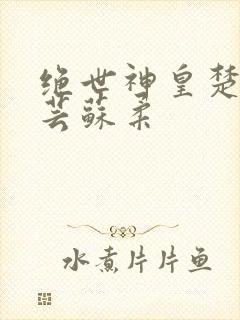 绝世神皇楚
芸蘇柔
水煮片片鱼